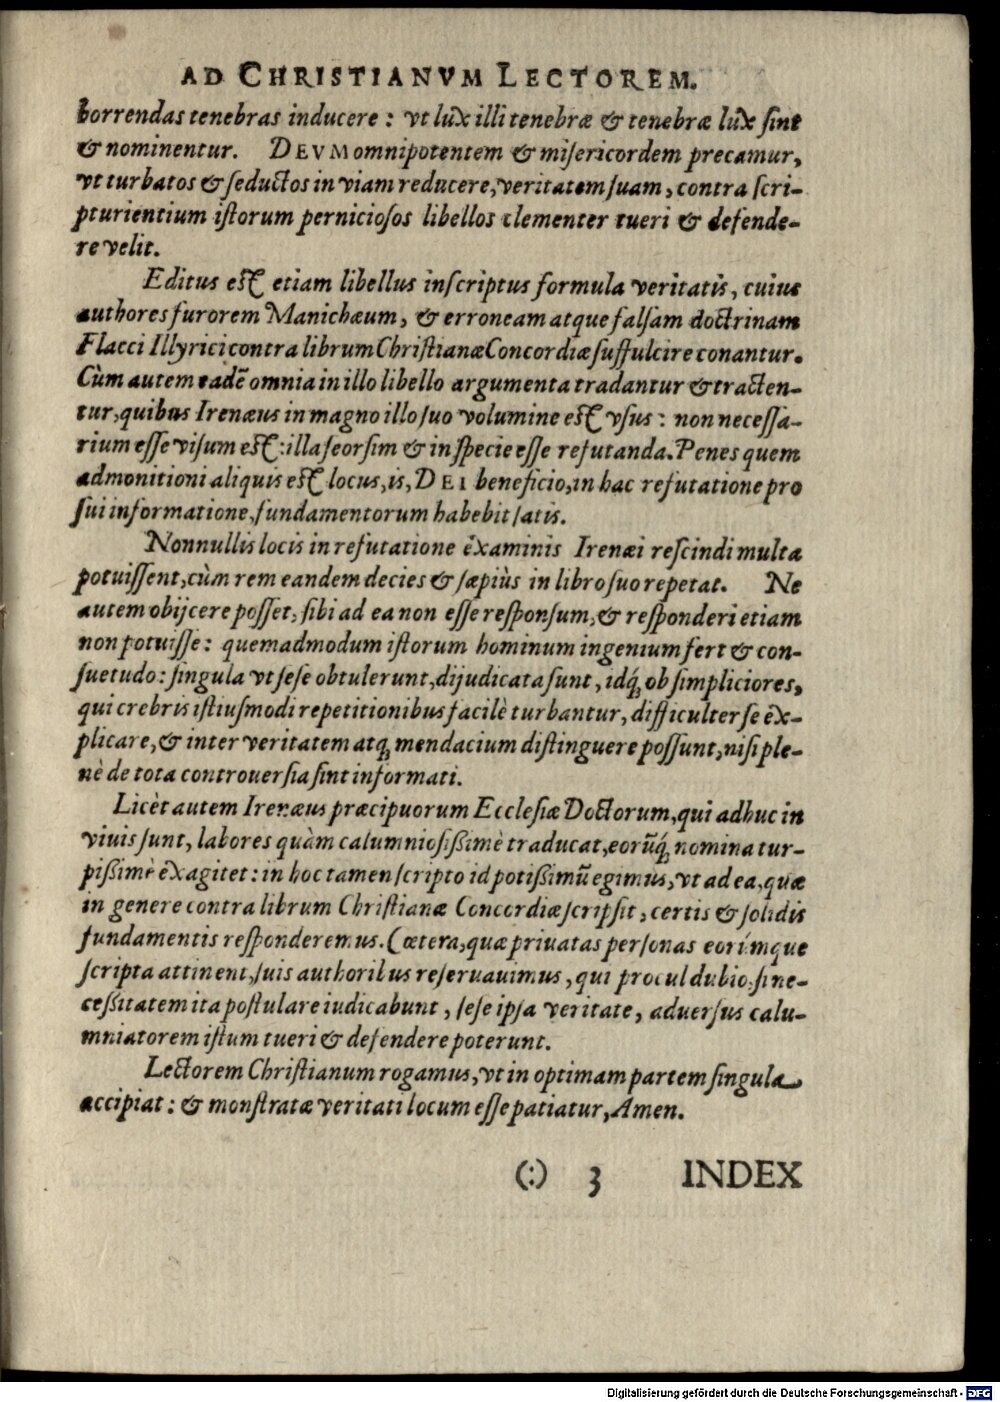 AD CHRISTIANVM LECTOREM.
horrendas tenebras inducere: vt lux illi tenebræ & tenebræ lux sint
& nominentur. DEVM omnipotentem & misericordem precamur,
vt turbatos & seductos in viam reducere, veritatem suam, contra scri-
pturientium istorum perniciosos libellos clementer tueri & defende-
re velit.
Editus est etiam libellus inscriptus formula veritatis, cuius
authores furorem Manichæum, & erroneam atque falsam doctrinam
Flacci Illyrici contra librum Christianæ Concordiæ suffulcire conantur.
Cùm autem eadē omnia in illo libello argumenta tradantur & tracten-
tur, quibus Irenæus in magno illo suo volumine est vsus: non necessa-
rium esse visum est: illa seorsim & in specie esse refutanda. Penes quem
admonitioni aliquis est locus, is, DEI beneficio, in hac refutatione pro
sui informatione, fundamentorum habebit satis.
Nonnullis locis in refutatione examinis Irenæi rescindi multa
potuissent, cùm rem eandem decies & sæpiùs in libro suo repetat. Ne
autem obijcere posset, sibi ad ea non esse responsum, & responderi etiam
non potuisse: quemadmodum istorum hominum ingenium fert & con-
suetudo: singula vt sese obtulerunt, dijudicata sunt, idq́; ob simpliciores,
qui crebris istiusmodi repetitionibus facilè turbantur, difficulter se ex-
plicare, & inter veritatem atq; mendacium distinguere possunt, nisi ple-
nè de tota controuersia sint informati.
Licèt autem Irenæus præcipuorum Ecclesiæ Doctorum, qui adhuc in
viuis sunt, labores quàm calumniosißimè traducat, eorūq́; nomina tur-
pißimè exagitet: in hoc tamen scripto id potißimū egimus, vt ad ea, quæ
in genere contra librum Christianæ Concordiæ scripsit, certis & solidis
fundamentis responderemus. Cœtera, quæ priuatas personas eorúmque
scripta attinent, suis authoribus reseruauimus, qui procul dubio, si ne-
ceßitatem ita postulare iudicabunt, sese ipsa veritate, aduersus calu-
mniatorem istum tueri & defendere poterunt.
Lectorem Christianum rogamus, vt in optimam partem singula
accipiat: & monstratæ veritati locum esse patiatur, Amen.
(:) 3 INDEX
Digitalisierung gefördert durch die Deutsche Forschungsgemeinschaft - DFG